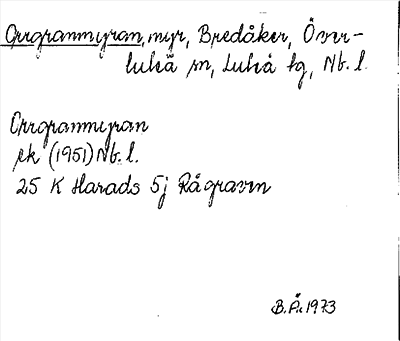 Orrgranmyran, myr, Bredåker, Över-
luleå sn, Luleå tg, Nb. l.
Orrgranmyran
ek (1951) Nb. l.
25 K Harads 5j Rågraven
B.Å. 1973